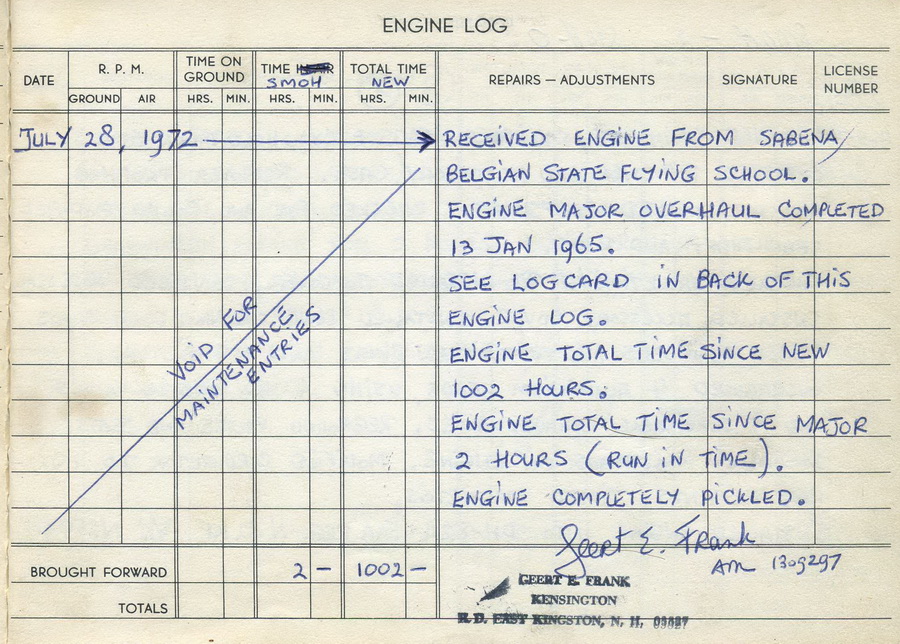 ENGINE LOG
DATE
R. P. M.
TIME ON GROUND
TIME
SMOH
TOTAL TIME
NEW
REPAIRS — ADJUSTMENTS
SIGNATURE
LICENSE NUMBER
GROUND AIR HRS. MIN. HRS. MIN. HRS. MIN.
JULY 28, 1972 RECEIVED ENGINE FROM SABENA
BELGIAN STATE FLYING SCHOOL.
ENGINE MAJOR OVERHAUL COMPLETED
13 JAN 1965.
SEE LOGCARD IN BACK OF THIS
ENGINE LOG.
ENGINE TOTAL TIME SINCE NEW
1002 HOURS.
ENGINE TOTAL TIME SINCE MAJOR
2 HOURS (RUN IN TIME).
ENGINE COMPLETELY PICKLED.
VOID FOR
MAINTENANCE
ENTRIES
Geert E. Frank
AM 1309297
BROUGHT FORWARD 2 — 1002 —
TOTALS
GEERT E. FRANK
KENSINGTON
R. D. EAST KINGSTON, N. H. 03827